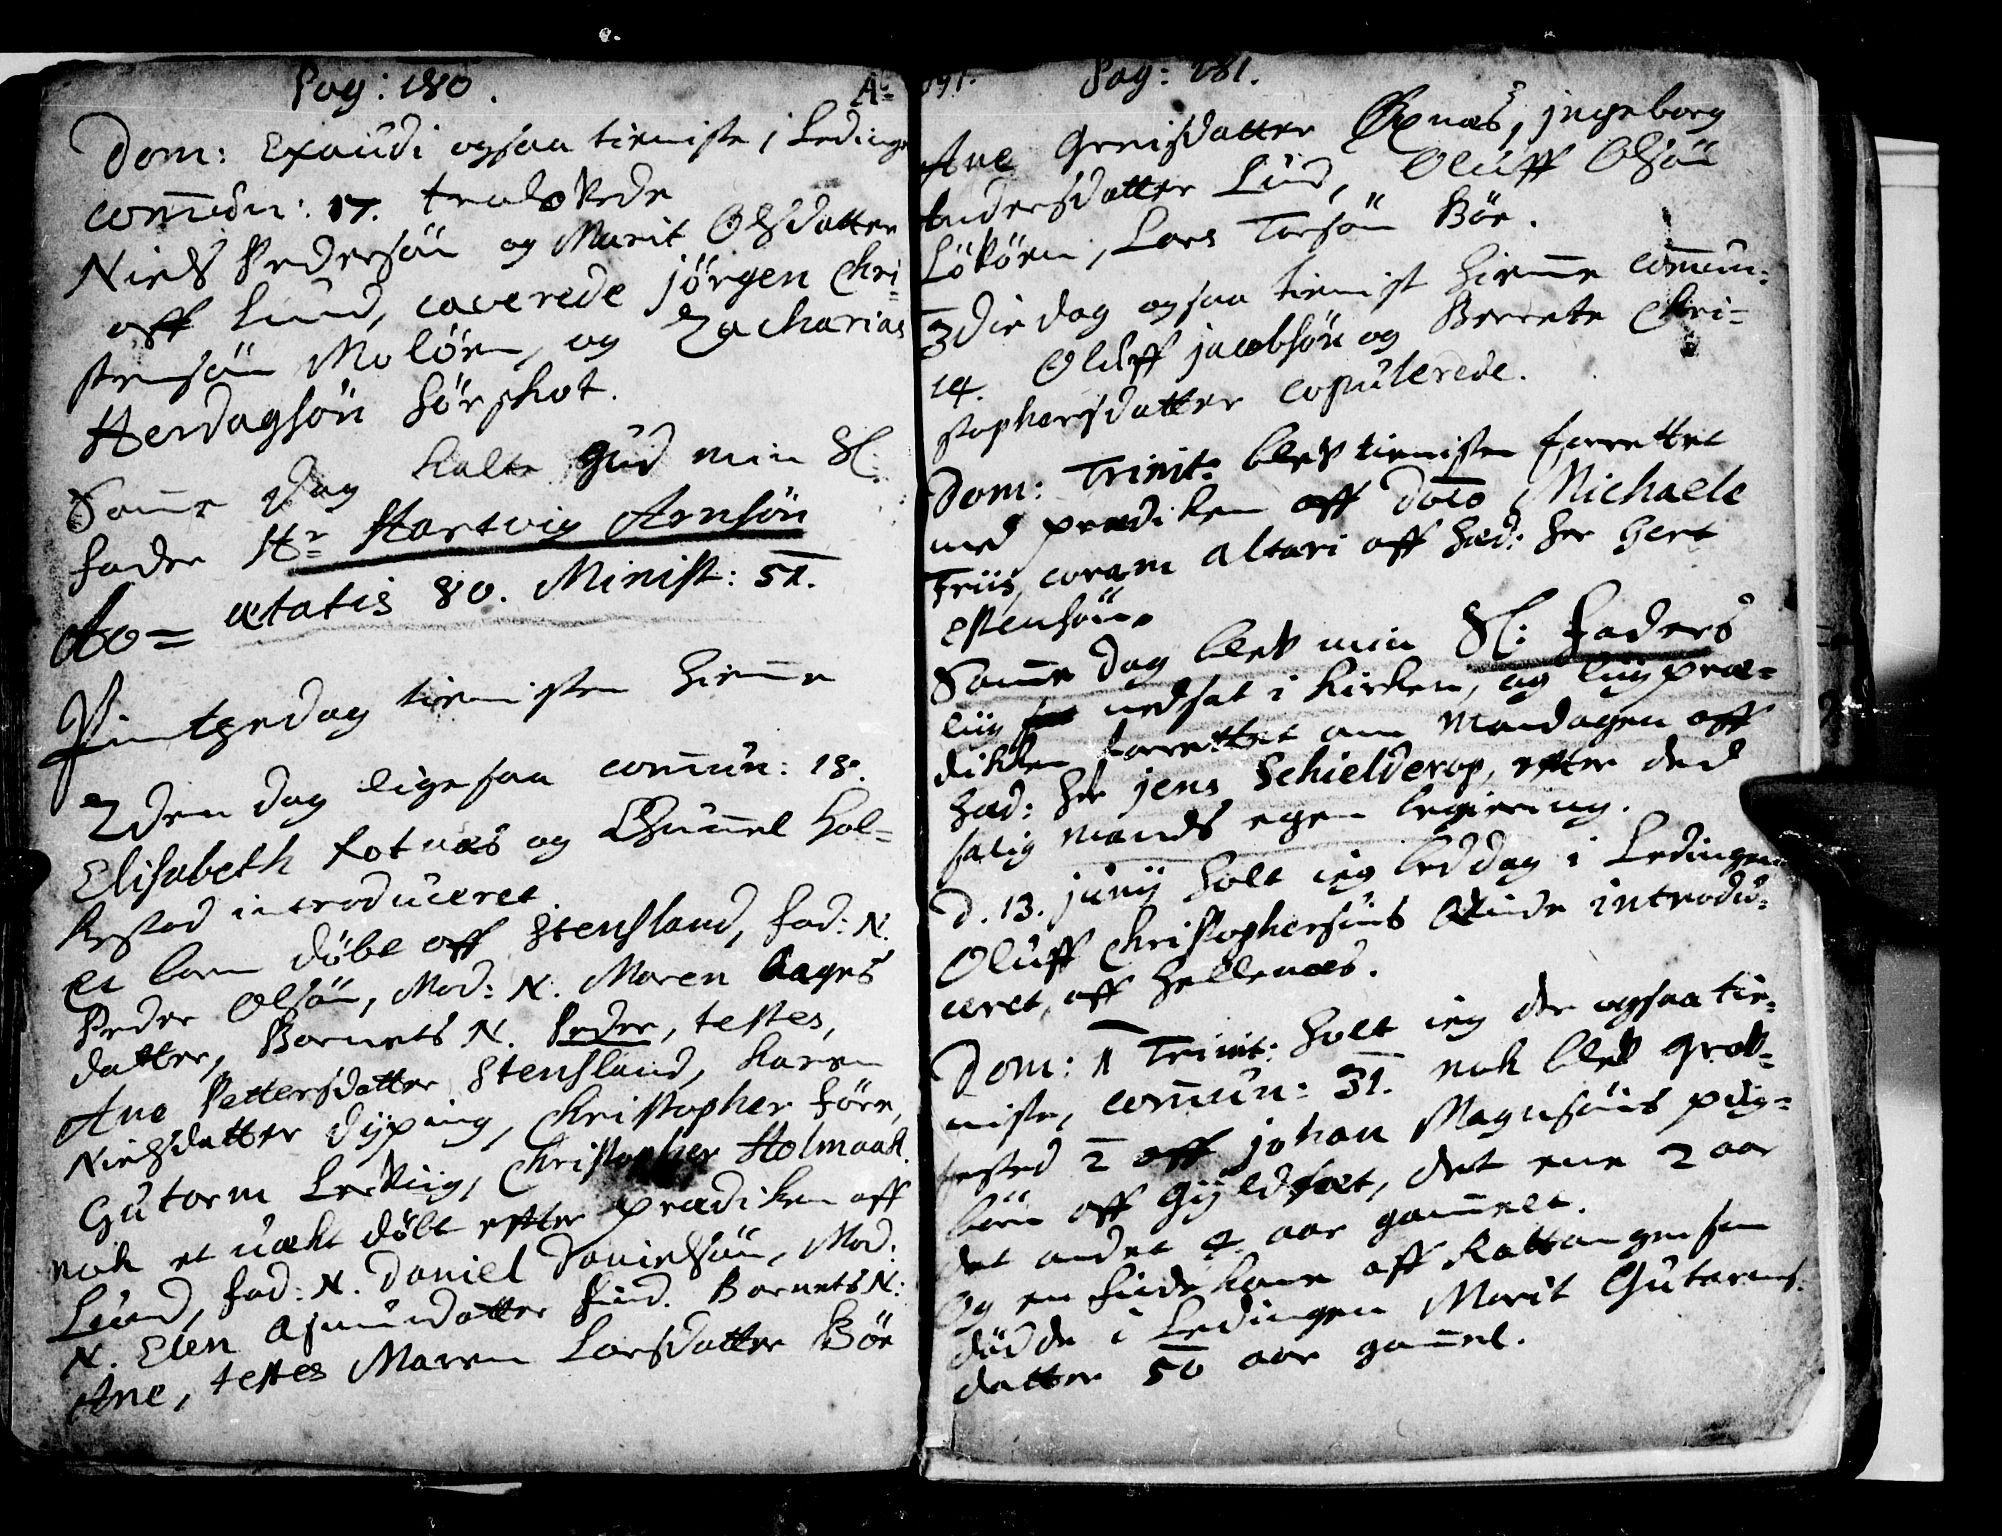 Pag: 180.
Dom: Exaudi ogsaa tieniste i Ledinge
commun: 17. trolofvede
Niels Pedersøn og Marit Olsdatter
off Lund, caverede Jörgen Chri=
stensøn Molöen, og Zacharias
Herdagsøn Sörskot.
Samme dag kalte Gud min Sl:
fader Hr Hartvig Arnsøn
Ao= ætatis 80. Minist: 51.
Pintzedag tienisten hieme
2den dag ligesaa commun: 18.
Elisabeth Kotnæs og Gunnel Hol=
kestad introduceret.
et barn döbt off Stensland, fad: N.
Peder Olsøn, Mod: N. Maren Aages
datter, Barnets N. Peder, testes,
Ane Pettersdatter Stensland, Karen
Nielsdatter Dyping, Christopher Före,
Gutorm Lerviig, Christopher Holmaak.
nok et uækt döbt efter prædiken off
Lund, fad: N. Daniel Danielsøn, Mod:
N. Elen Asmundatter find. Barnets N:
Ane, testes Maren Larsdatter Böe
Ao 1691. Pag: 181.
Ane Greisdatter Øxnæs, Ingeborg
Andersdatter Lund, Oluff Olsøn
Lökören, Lars Torsøn Böe.
3die dag ogsaa tienist hieme commun:
14. Oluff Jacobsøn og Berrete Chri=
stophersdatter copulerede.
Dom: Trinit: blef tienisten forrettet
med prædiken off Docto Michaele
Friis, coram altari off hæd: her Gert
Estensøn.
Samme dag blef min Sl: Faders
liig nedsat i Kirken, og liigpræ=
diken forrettet om Mandagen off
hæd: her Jens Schielderop, efter ded
salig Mands egen begiering.
D. 13. Junij holt ieg beddag i Ledingen
Oluff Christophersøns Qvinde introdu=
ceret, off Hellenæs.
Dom: 1 Trinit: holt ieg der ogsaa tie=
niste, commun: 31. nok blef graf=
fested 2 off Johan Magnusøns piig=
börn off Gyldfæt, det ene 2 aar
det andet 4 aar gammelt.
Og en findekone off Kattangen som
dödde i Ledingen Marit Gutorms=
datter 50 aar gammel.